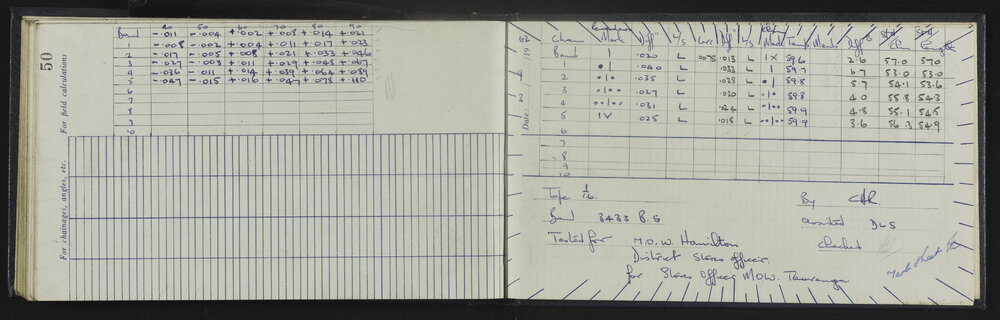 50
For field calculations
For chainages, angles, etc.
40 50 60 70 80 90
Band -.011 -.004 +.002 +.008 +.014 +.021
1 -.008 -.002 +.004 +.011 +.017 +.023
2 -.017 -.005 +.008 +.021 +.033 +.046
3 -.027 -.008 +.011 +.029 +.048 +.067
4 -.036 -.011 +.014 +.039 +.064 +.089
5 -.047 -.015 +.016 +.047 +.078 +.110
6
7
8
9
10
Date: 119 62
Chain Mark Diff L/S Corr Diff L/S Mark Temp Diff Std Std
Band | .020 L .0075 .013 L 1X 59.6 2.6 57.0 57.0
1 .040 L .033 L | 59.7 6.7 53.0 53.0
2 .035 L .028 L 59.8 5.7 54.1 53.6
3 .027 L .020 L 59.8 4.0 55.8 54.3
4 .031 L .024 L 59.9 4.8 55.1 54.5
5 1V .025 L .018 L 59.9 3.6 56.3 54.9
6
7
8
9
10
Tape 1/16.
Band 3433 B.S
Tested for M.O.W. Hamilton
District Stores Officer.
for Stores Officer MOW. Tauranga
By
assisted DLS
checked
Test Sheet